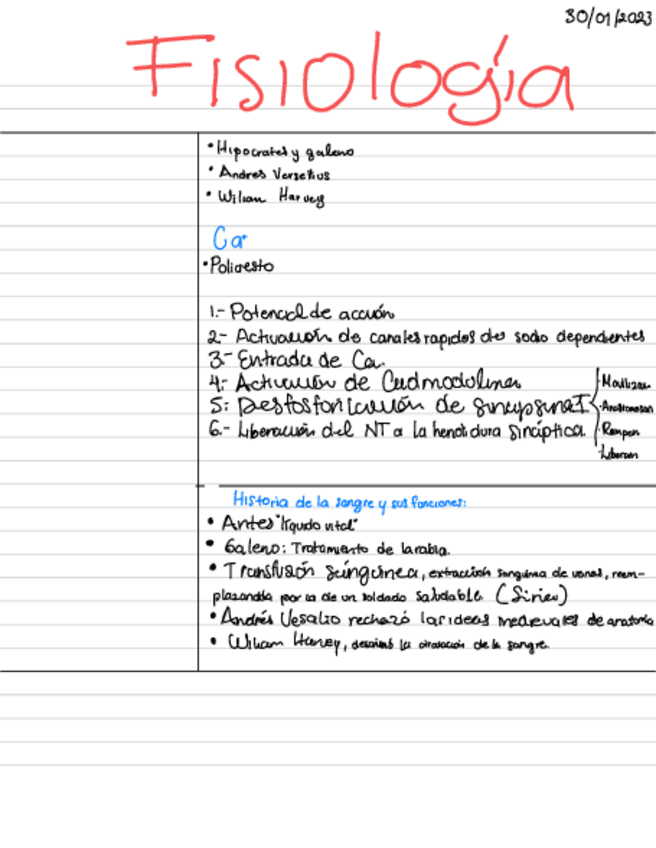 30/01/2023
Fisiología
• Hipocrates y galeno
• Andres Verselius
• Wiliam Harvey
Ca
• Poliresto
1.- Potencial de acción
2.- Activación de canales rapidos des sodio dependientes
3.- Entrada de Ca.
4.- Activación de Cudmodolinas
5.- Desfosforicación de sinapsina I
Movilizan
Anastomosan
Rompen
Liberan
6.- Liberación del NT a la hendidura sináptica.
Historia de la sangre y sus funciones:
• Antes "líquido vital"
• Galeno: Tratamiento de la rabia.
• Transfusión Sanguínea, extracción sanguinea de venas, reem-
plazandola por la de un soldado Saludable (Siries)
• Andrés Vesalio rechazó las ideas medievales de anatomía
• Wiliam Harvey, describió la circulación de la sangre.